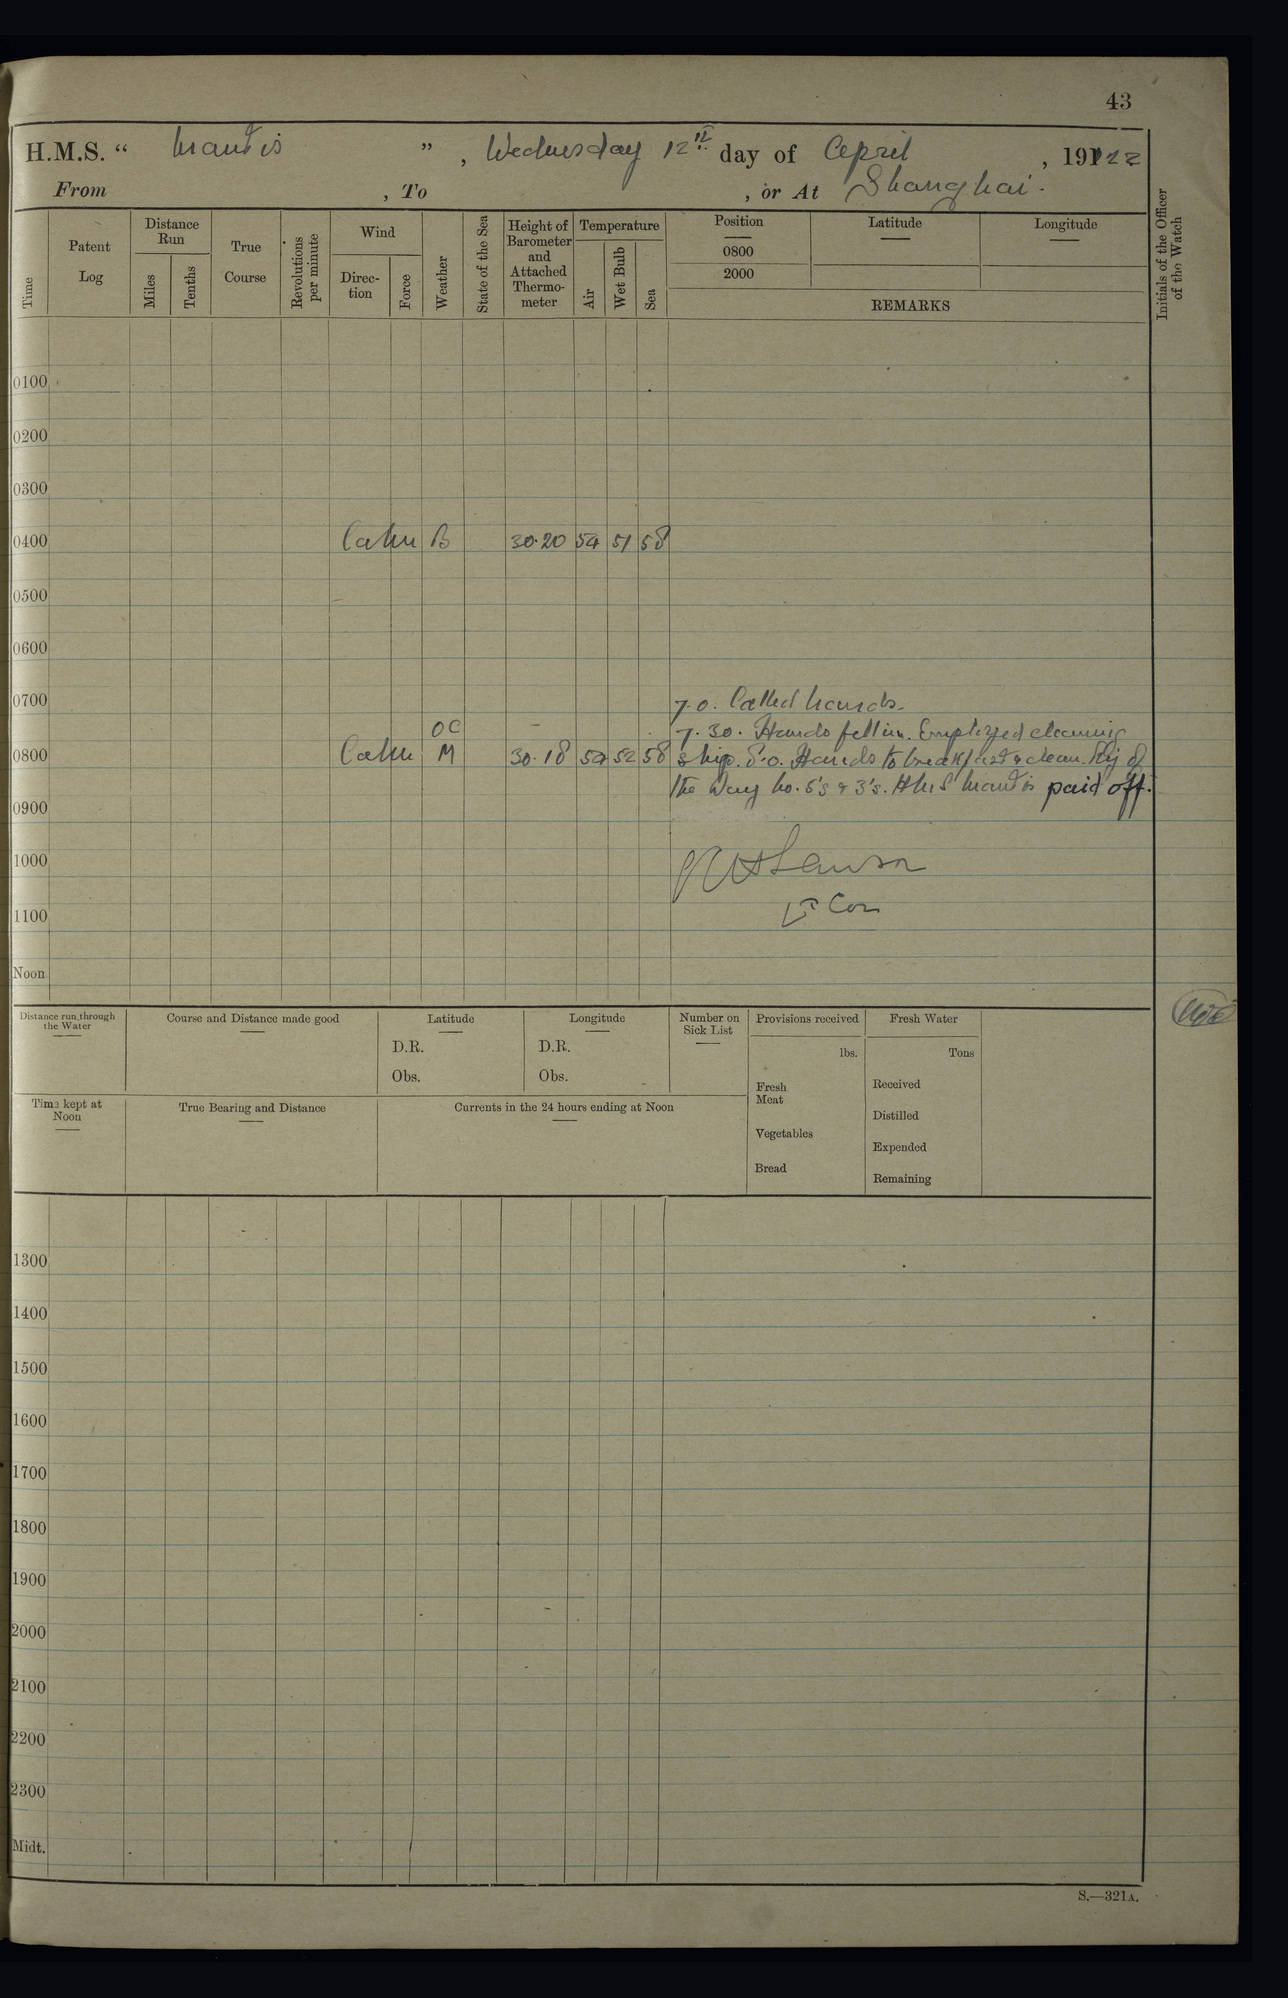 43
H.M.S. “ Mantis ” , Wednesday 12th day of April , 1922
From , To , or At Shanghai.
Time
Patent Log
Distance Run
Miles
Tenths
True Course
Revolutions per minute
Wind
Direction
Force
Weather
State of the Sea
Height of Barometer and Attached Thermometer
Temperature
Air
Wet Bulb
Sea
Position
0800
2000
Latitude
Longitude
REMARKS
Initials of the Officer of the Watch
0100
0200
0300
0400 Calm B 30.20 54 51 58
0500
0600
0700 7.0. Called hands.
OC 7.30. Hands fell in. Employed cleaning
0800 Calm M 30.18 54 52 58 ship. 8.0. Hands to breakfast & clean. Rig of
the day No. 5's & 3's. HMS Mantis paid off.
0900
1000
Lt Com
1100
Noon
Distance run through the Water
Course and Distance made good
Latitude
D.R.
Obs.
Longitude
D.R.
Obs.
Number on Sick List
Provisions received
lbs.
Fresh Meat
Vegetables
Bread
Fresh Water
Tons
Received
Distilled
Expended
Remaining
Time kept at Noon
True Bearing and Distance
Currents in the 24 hours ending at Noon
1300
1400
1500
1600
1700
1800
1900
2000
2100
2200
2300
Midt.
S.—321A.